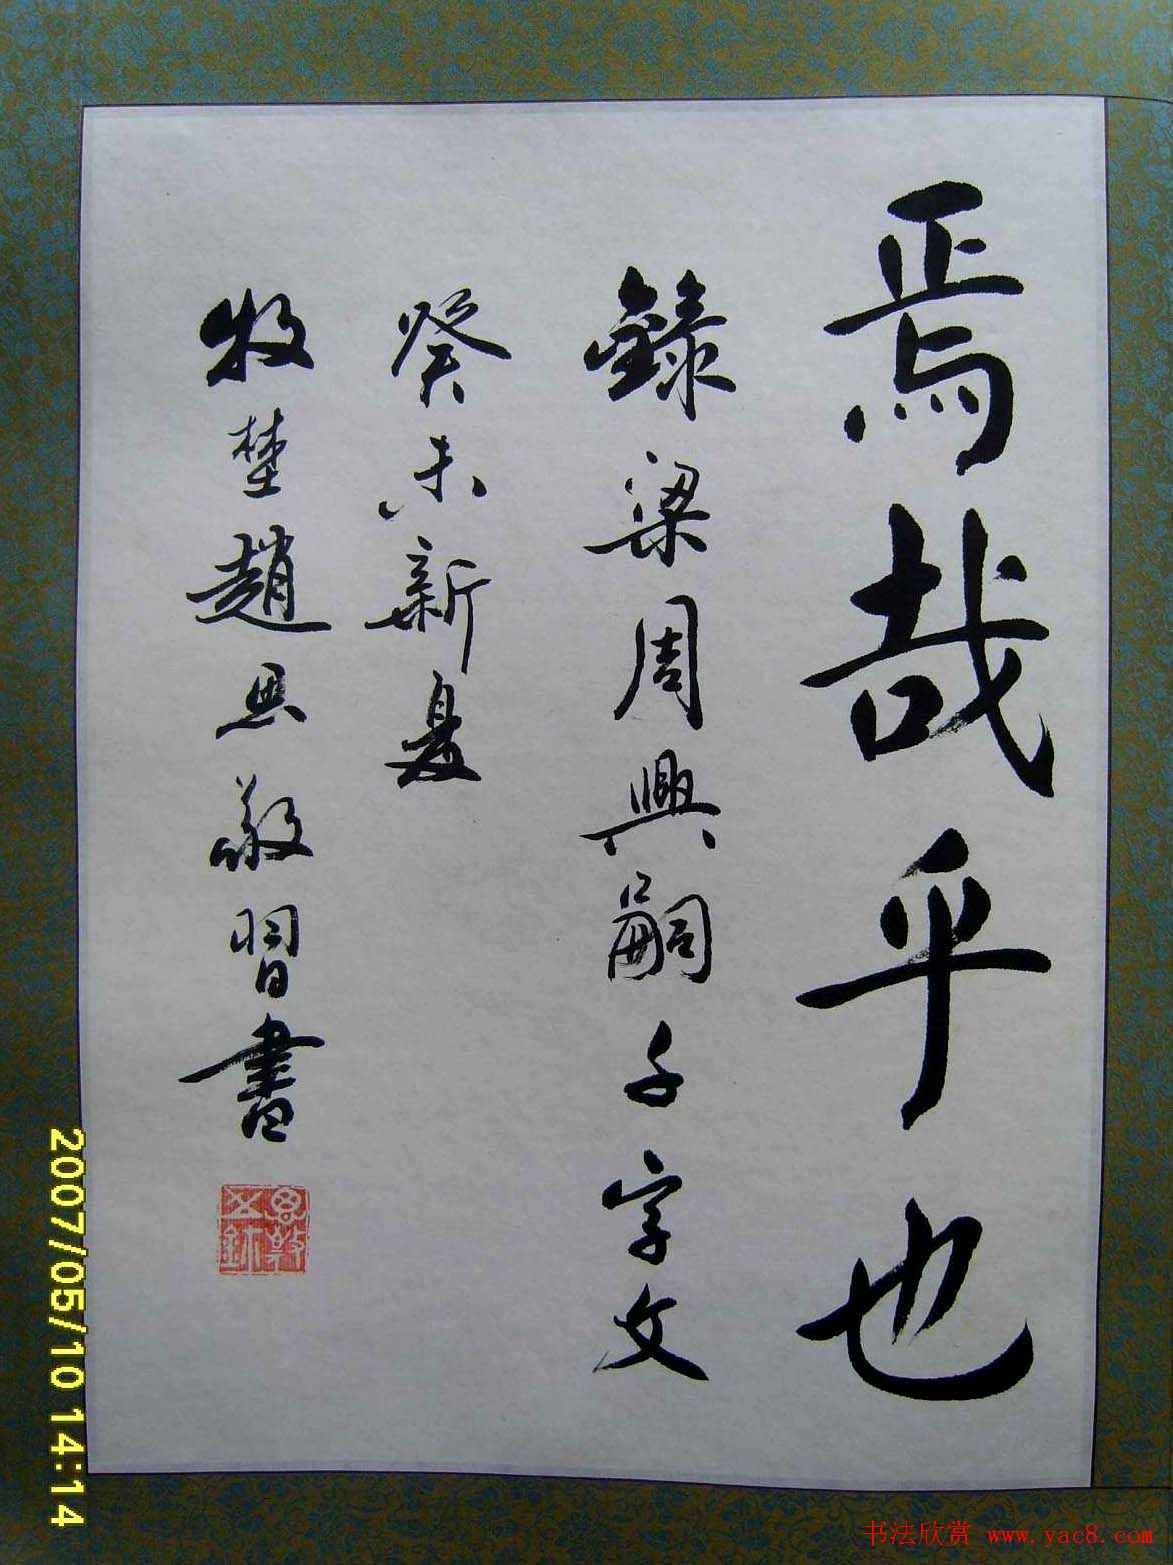 焉哉乎也
錄梁周興嗣千字文
癸未新夏
牧埜趙思敬習書
2007/05/10 14:14
书法欣赏 www.yac8.com